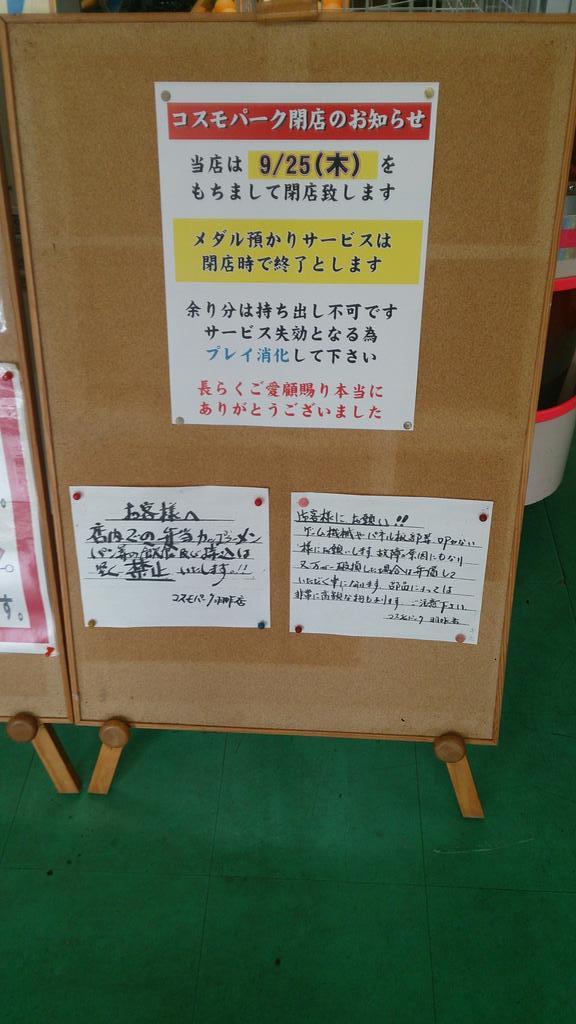 コスモパーク閉店のお知らせ
当店は 9/25(木) を
もちまして閉店致します
メダル預かりサービスは
閉店時で終了とします
余り分は持ち出し不可です
サービス失効となる為
プレイ消化して下さい
長らくご愛顧賜り本当に
ありがとうございました
お客様へ
店内での弁当カップラーメン
パン等の飲食及び持込は
堅く禁止いたします。!!
コスモパーク羽咋店
お客様にお願い!!
ゲーム機械やパネル板部等叩かない
様にお願いします 故障の原因にもなり
又万が一破損した場合は弁償して
いただく事になります 部品によっては
非常に高額な物もあります ご注意下さい
コスモパーク 羽咋店
す。